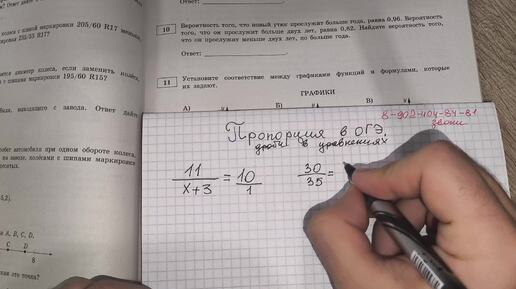 Ответ:
10 Вероятность того, что новый утюг прослужит больше года, равна 0,96. Вероятность
того, что он прослужит больше двух лет, равна 0,82. Найдите вероятность того,
что он прослужит меньше двух лет, но больше года.
Ответ:
11 Установите соответствие между графиками функций и формулами, которые
их задают.
ГРАФИКИ
А) Б) В)
колеса с шиной маркировки 205/60 R17
диаметр колеса, если заменить колёса,
с шинами маркировки 195/60 R15?
выходящего с завода. Ответ дайте
автомобиля при одном обороте колеса,
на заводе, колёсами с шинами маркировки
A, B, C, D.
C D
8
эта точка?
8-902-404-84-81
звони
Пропорция в ОГЭ,
дроби в уравнениях
11/x+3 = 10/1
30/35 =